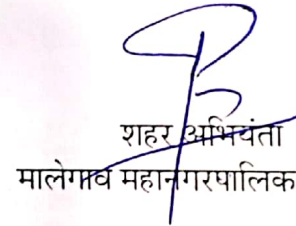 शहर अभियंता
मालेगाव महानगरपालिक